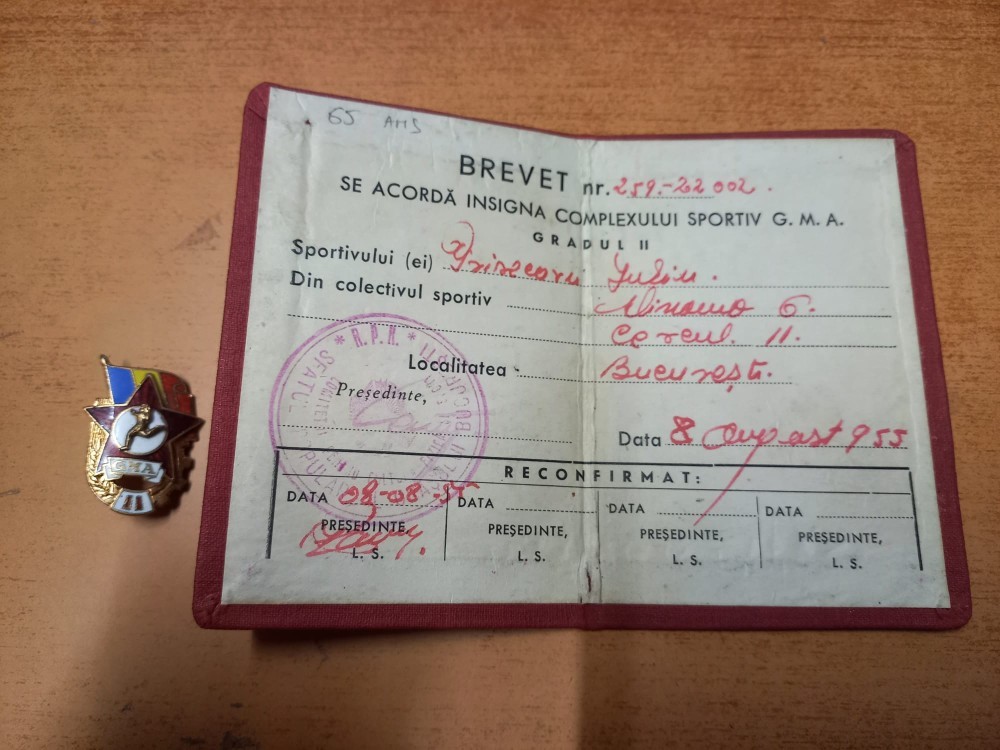 65 AMS
BREVET nr. 259.-22 002.
SE ACORDĂ INSIGNA COMPLEXULUI SPORTIV G. M. A.
GRADUL II
Sportivului (ei) Iuliu.
Din colectivul sportiv Dinamo 6.
Cercul 11.
Localitatea București.
Președinte,
* R.P.R. *
SFATUL
Data 8 August 955
RECONFIRMAT:
DATA 08-08-55 DATA DATA DATA
PREȘEDINTE, PREȘEDINTE, PREȘEDINTE, PREȘEDINTE,
L. S. L. S. L. S. L. S.
GMA
II